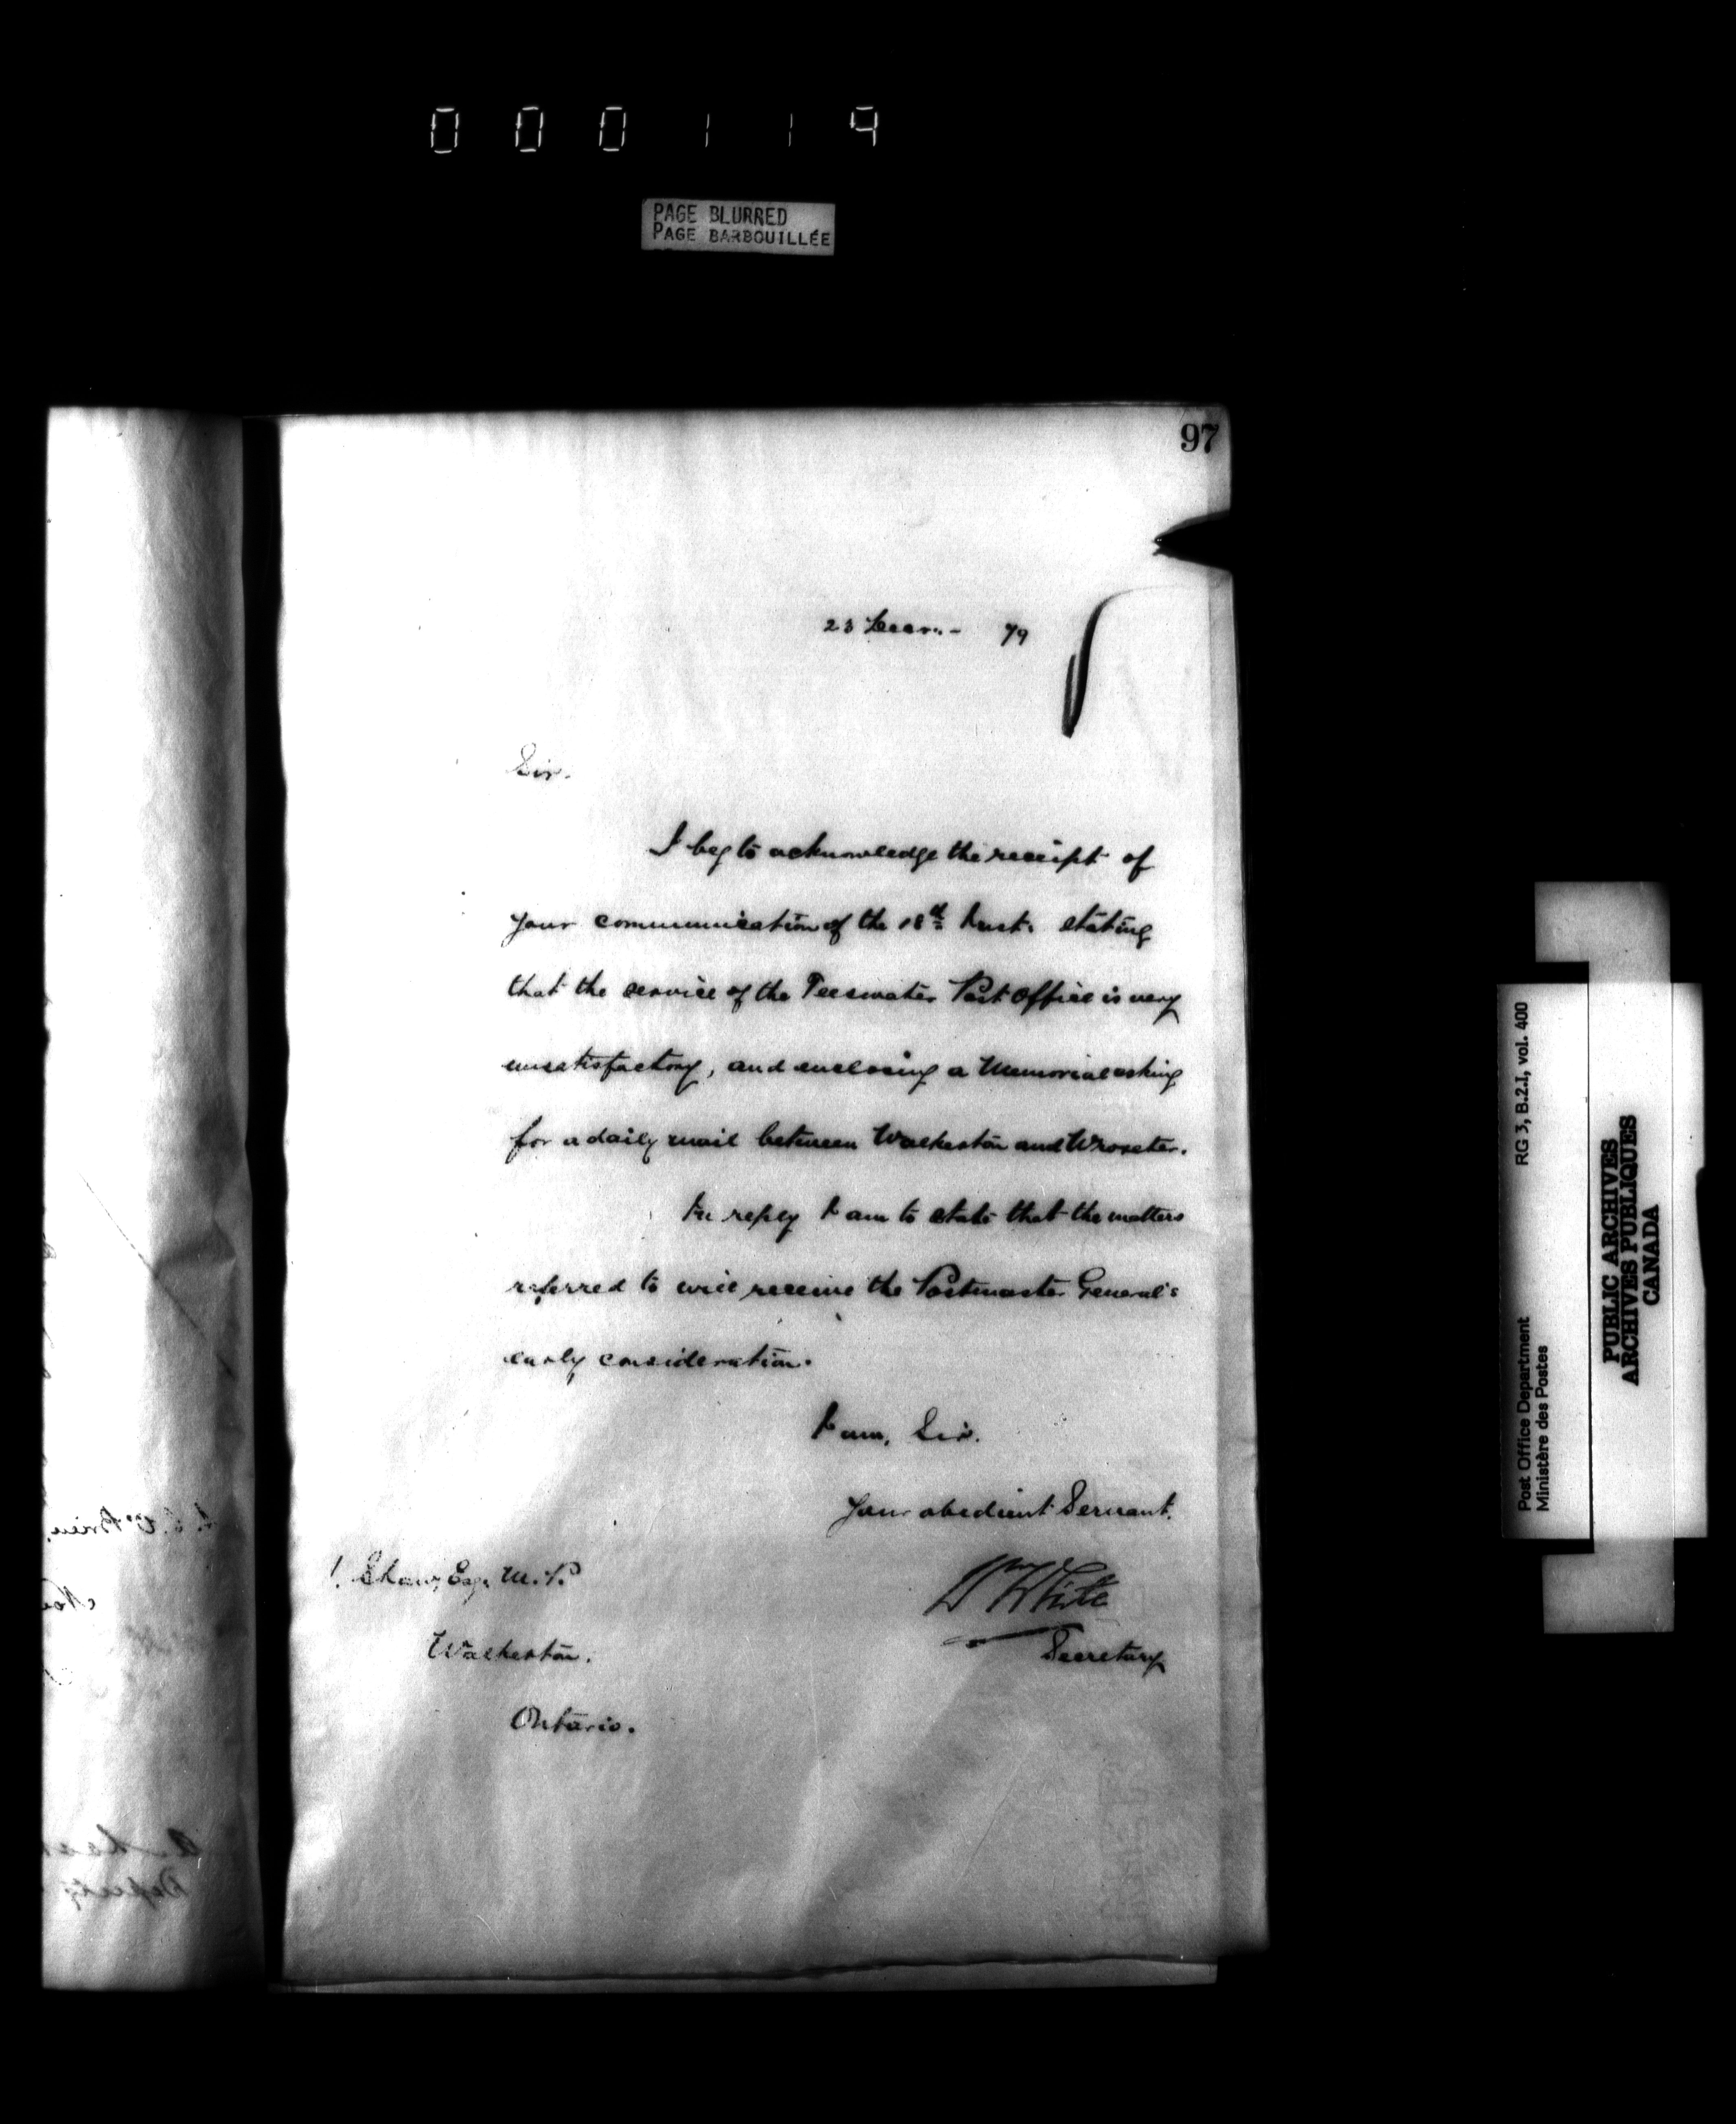 000119
PAGE BLURRED
PAGE BARBOUILLÉE
97
23 79
Sir.
I beg to acknowledge the receipt of
your communication of the 18th Inst. stating
that the service of the Teeswater Post Office is very
unsatisfactory, and enclosing a Memorial asking
for a daily mail between Walkerton and Wroxeter.
In reply I am to state that the matters
referred to will receive the Postmaster General's
early consideration.
I am, Sir.
Your obedient Servant.
Wm White
Secretary
Shaw, Esq. M.P.
Walkerton.
Ontario.
RG 3, B.2.I, vol. 400
Post Office Department
Ministère des Postes
PUBLIC ARCHIVES
ARCHIVES PUBLIQUES
CANADA